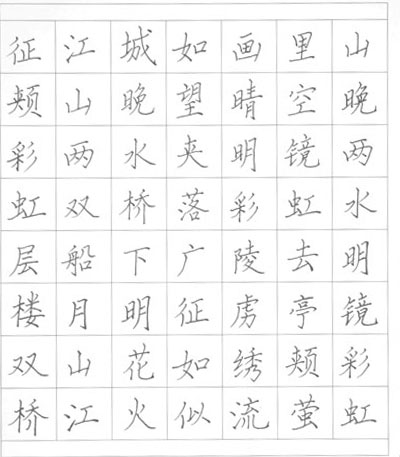 征江城如画里山
颊山晚望晴空晚
彩两水夹明镜两
虹双桥落彩虹水
层船下广陵去明
楼月明征虏亭镜
双山花如绣颊彩
桥江火似流萤虹